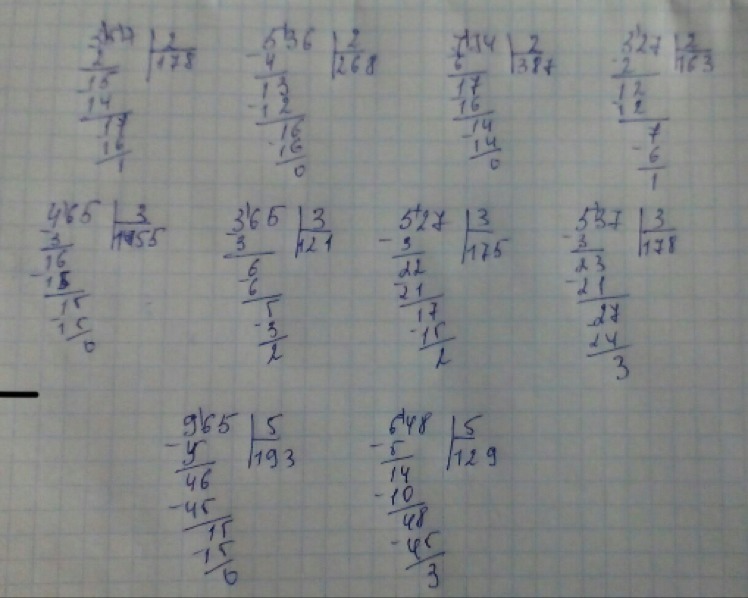 357 2 536 2 774 2 327 2
- 2 178 - 4 268 - 6 387 - 2 163
15 13 17 12
- 14 - 12 - 16 - 12
17 16 14 7
- 16 - 16 - 14 - 6
1 0 0 1
465 3 365 3 527 3 537 3
- 3 155 - 3 121 - 3 175 - 3 178
16 6 22 23
- 15 - 6 - 21 - 21
15 5 17 27
- 15 - 3 - 15 24
0 2 2 3
965 5 648 5
- 5 193 - 5 129
46 14
- 45 - 10
15 48
- 15 - 45
0 3